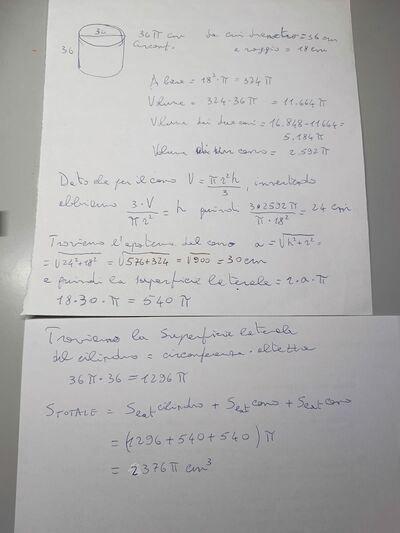 36
36
36π cm
Circonf.
da cui diametro = 36 cm
e raggio = 18 cm
A base = 18²·π = 324π
Volume = 324·36π = 11.664π
Volume dei due coni = 16.848-11664 =
5.184π
Volume di un cono = 2.592π
Dato che per il cono V = πr²h/3, invertendo
abbiamo 3·V/πr² = h quindi 3·2592π/π·18² = 24 cm
Troviamo l'apotema del cono a = √h²+r² =
= √24²+18² = √576+324 = √900 = 30 cm
e quindi la superficie laterale = r·a·π
18·30·π = 540π
Troviamo la Superficie laterale
del cilindro = circonferenza·altezza
36π·36 = 1296π
STOTALE = Slat cilindro + Slat cono + Slat cono
= (1296+540+540)π
= 2376π cm³